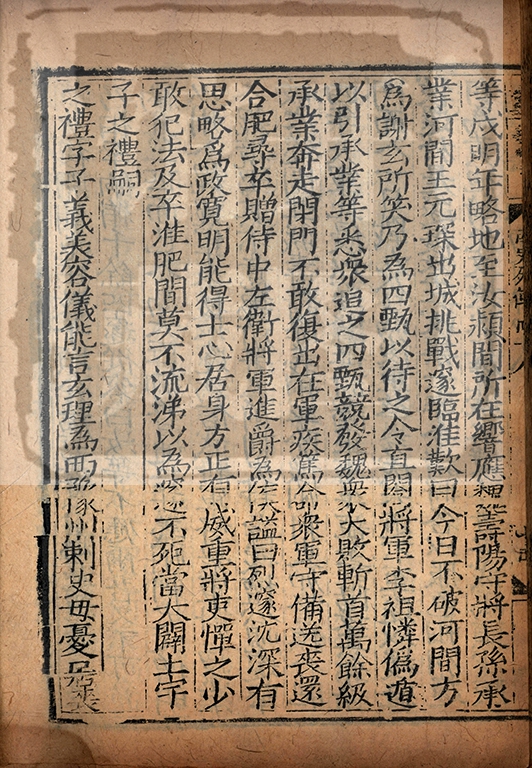 等戍明年略地至汝潁間所在響應魏壽陽守將長孫承
業河間王元琛出城挑戰邃臨淮歎曰今日不破河間方
爲謝玄所笑乃爲四甄以待之令直閤將軍李祖憐偽遁
以引承業等悉衆追之四甄競發魏衆大敗斬首萬餘級
承業奔走閉門不敢復出在軍疾篤命衆軍守備送喪還
合肥尋卒贈侍中左衛將軍進爵爲侯謚曰烈邃沈深有
思略爲政寬明能得士心居身方正有威重將吏憚之少
敢犯法及卒淮肥間莫不流涕以爲邃不死當大闢土宇
子之禮嗣
之禮字子義美容儀能言玄理爲西豫州刺史母憂居喪